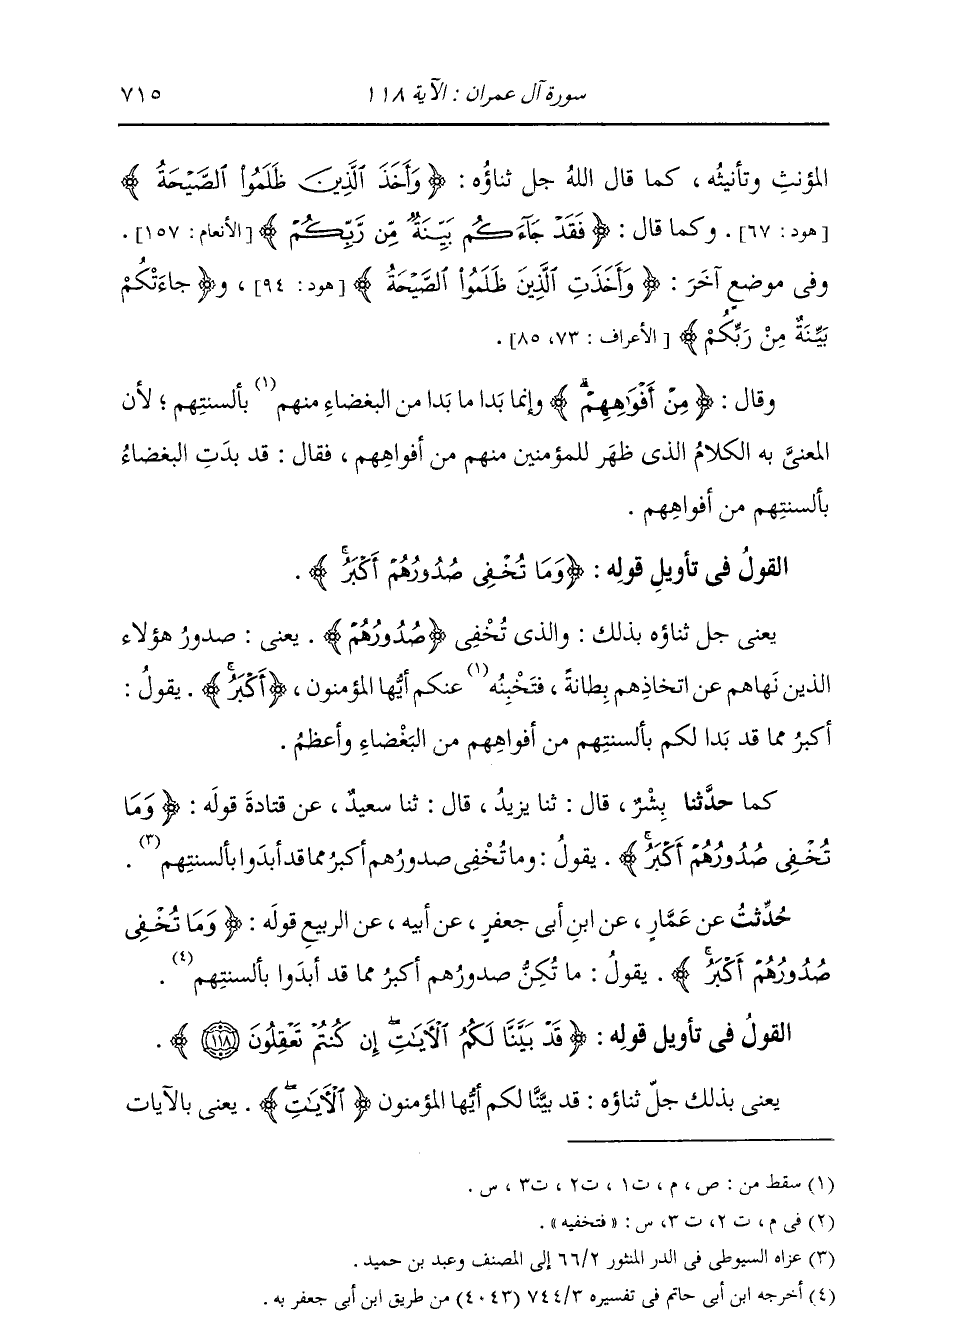 سورة آل عمران : الآية ١١٨ ٧١٥
المؤنثِ وتأنيثُه ، كما قال اللهُ جل ثناؤُه : ﴿ وَأَخَذَ ٱلَّذِينَ ظَلَمُوا۟ ٱلصَّيْحَةُ ﴾
[ هود : ٦٧] . وكما قال : ﴿ فَقَدْ جَآءَكُم بَيِّنَةٌ مِّن رَّبِّكُمْ ﴾ [ الأنعام : ١٥٧] .
وفى موضعٍ آخَرَ : ﴿ وَأَخَذَتِ ٱلَّذِينَ ظَلَمُوا۟ ٱلصَّيْحَةُ ﴾ [ هود : ٩٤] ، و﴿ جاءَتْكُمْ
بَيِّنَةٌ مِنْ رَبِّكُمْ ﴾ [ الأعراف : ٧٣، ٨٥] .
وقال : ﴿ مِنْ أَفْوَٰهِهِمْ ۖ ﴾ وإنما بَدا ما بَدا من البغضاءِ منهم(١) بألسنتِهم ؛ لأن
المعنىَّ به الكلامُ الذى ظهَر للمؤمنين منهم من أفواهِهم ، فقال : قد بدَتِ البغضاءُ
بألسنتِهم من أفواهِهم .
القولُ فى تأويلِ قولِه : ﴿وَمَا تُخْفِى صُدُورُهُمْ أَكْبَرُ ۚ ﴾ .
يعنى جل ثناؤه بذلك : والذى تُخْفِى ﴿صُدُورُهُمْ ﴾ . يعنى : صدورُ هؤلاء
الذين نَهاهم عن اتخاذِهم بِطانةً ، فتَخْبِنُه(١) عنكم أيُّها المؤمنون ، ﴿أَكْبَرُ ۚ ﴾ . يقولُ :
أكبرُ مما قد بَدا لكم بألسنتِهم من أفواهِهم من البَغْضاءِ وأعظمُ .
كما حدَّثنا بِشْرٌ ، قال : ثنا يزيدُ ، قال : ثنا سعيدٌ ، عن قتادةَ قولَه : ﴿ وَمَا
تُخْفِى صُدُورُهُمْ أَكْبَرُ ۚ ﴾ . يقولُ : وما تُخْفِى صدورُهم أكبرُ مما قد أبدَوا بألسنتِهم(٣) .
حُدِّثتُ عن عَمَّارٍ ، عن ابنِ أبى جعفرٍ ، عن أبيه ، عن الربيعِ قولَه : ﴿ وَمَا تُخْفِى
صُدُورُهُمْ أَكْبَرُ ۚ ﴾ . يقولُ : ما تُكِنُّ صدورُهم أكبرُ مما قد أبدَوا بألسنتِهم(٤) .
القولُ فى تأويلِ قولِه : ﴿ قَدْ بَيَّنَّا لَكُمُ ٱلْـَٔايَـٰتِ ۖ إِن كُنتُمْ تَعْقِلُونَ ١١٨ ﴾ .
يعنى بذلك جلّ ثناؤه : قد بيَّنَّا لكم أيُّها المؤمنون ﴿ ٱلْـَٔايَـٰتِ ۖ ﴾ . يعنى بالآيات
(١) سقط من : ص ، م ، ت١ ، ت٢ ، ت٣ ، س .
(٢) فى م ، ت ٢، ت ٣، س : « فتخفيه » .
(٣) عزاه السيوطى فى الدر المنثور ٦٦/٢ إلى المصنف وعبد بن حميد .
(٤) أخرجه ابن أبى حاتم فى تفسيره ٧٤٤/٣ (٤٠٤٣) من طريق ابن أبى جعفر به .